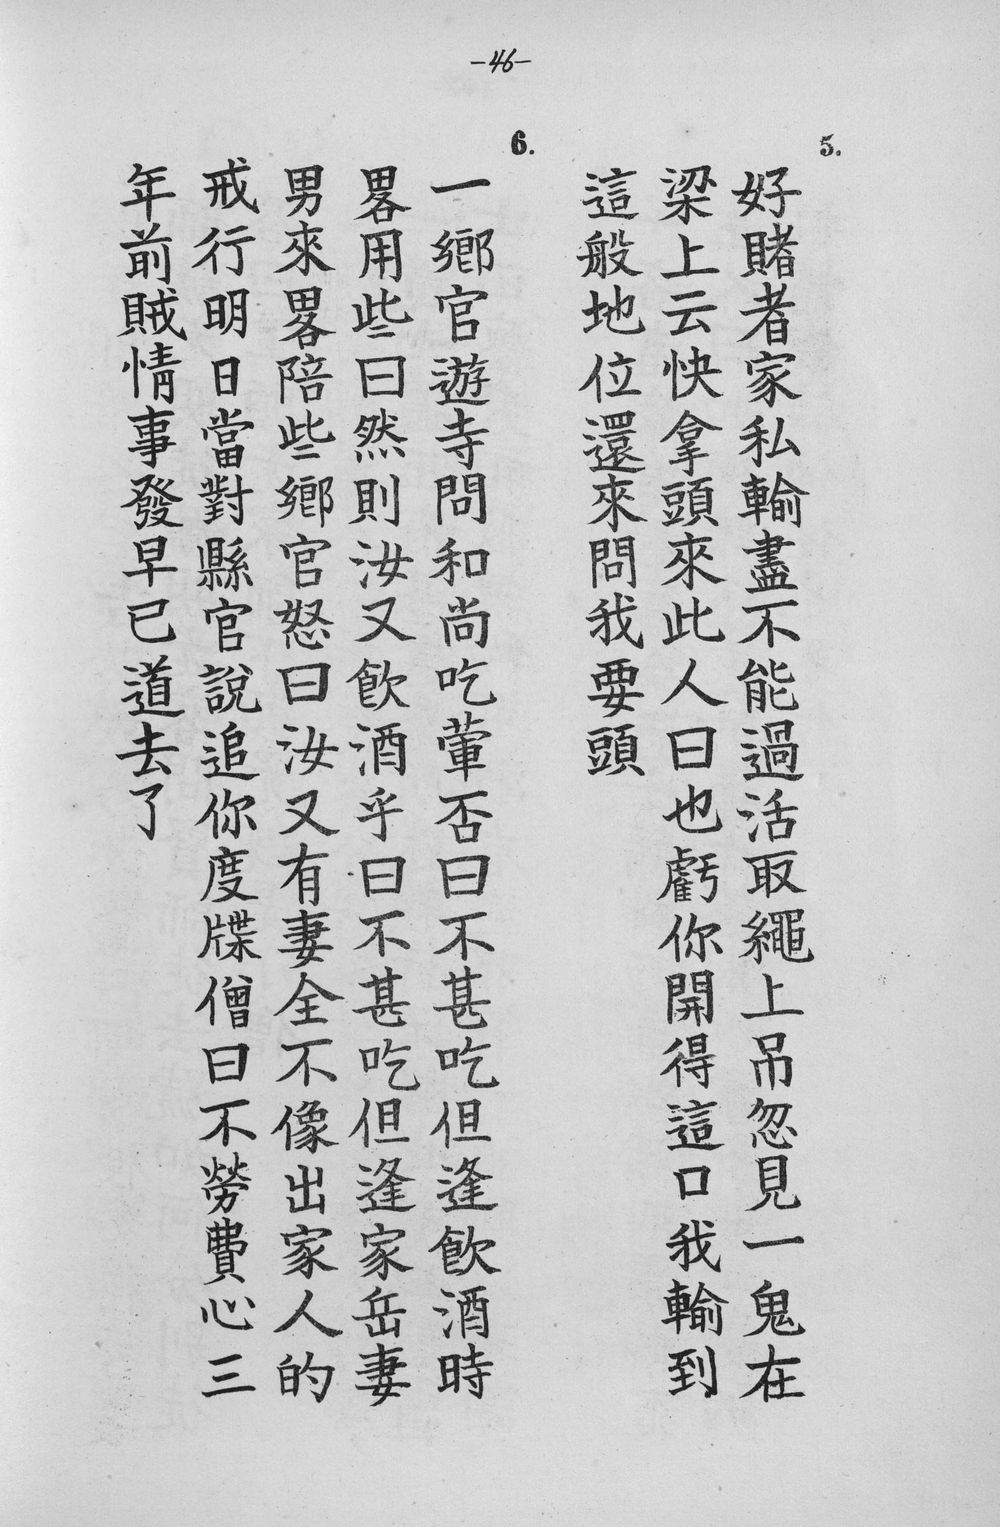 -46-
5.
好賭者家私輸盡不能過活取繩上吊忽見一鬼在
梁上云快拿頭來此人曰也虧你開得這口我輸到
這般地位還來問我要頭
6.
一鄉官遊寺問和尚吃葷否曰不甚吃但逢飲酒時
畧用些曰然則汝又飲酒乎曰不甚吃但逢家岳妻
男來畧陪些鄉官怒曰汝又有妻全不像出家人的
戒行明日當對縣官說追你度牒僧曰不勞費心三
年前賊情事發早已道去了